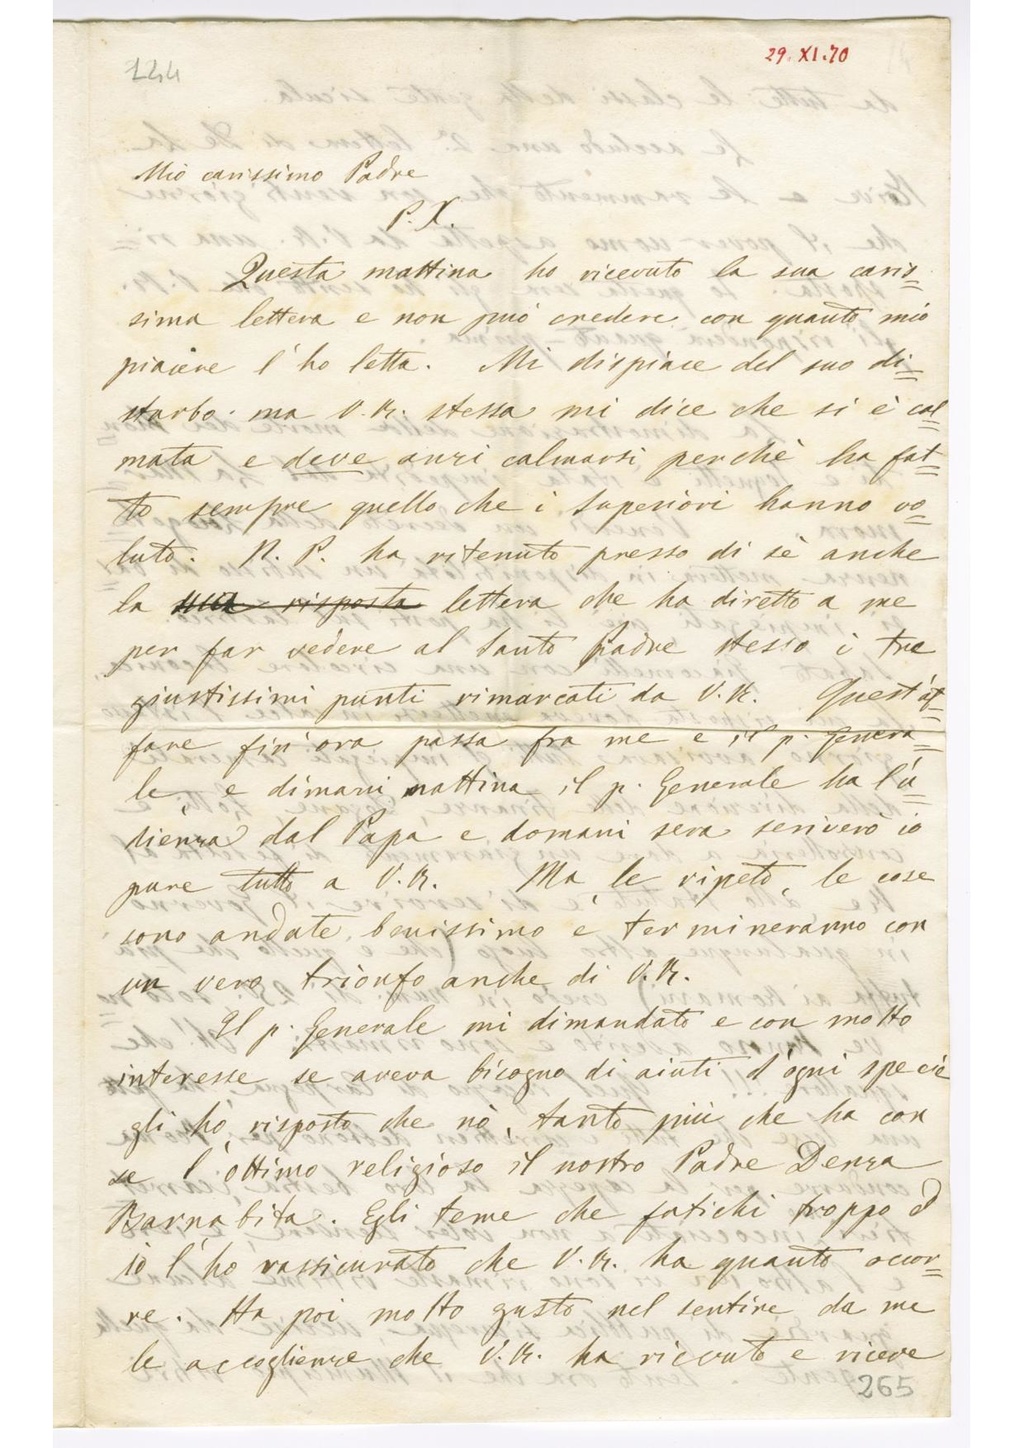 144
29. XI. 70
Mio carissimo Padre
P. X.
Questa mattina ho ricevuto la sua caris=
sima lettera e non può credere con quanto mio
piacere l'ho letta. Mi dispiace del suo di=
sturbo: ma V. R. stessa mi dice che si è cal=
mata e deve anzi calmarsi perchè ha fat=
to sempre quello che i Superiori hanno vo=
luto. N. P. ha ritenuto presso di sè anche
la sua risposta lettera che ha diretto a me
per far vedere al Santo Padre stesso i tre
giustissimi punti rimarcati da V. R. Quest'af=
fare fin'ora passa fra me e il p. Genera=
le, e dimani mattina il p. Generale ha l'u=
dienza dal Papa e domani sera scriverò io
pure tutto a V. R. Ma le ripeto, le cose
sono andate benissimo e termineranno con
un vero trionfo anche di V. R.
Il p. Generale mi dimandato e con molto
interesse se aveva bisogno di aiuti d'ogni specie
gli hò risposto che nò, tanto più che ha con
se l'ottimo religioso il nostro Padre Denza
Barnabita. Egli teme che fatichi troppo ed
io l'hò rassicurato che V. R. ha quanto occor=
re. Ha poi molto gusto nel sentire da me
le accoglienze che V. R. ha ricevuto e riceve
265